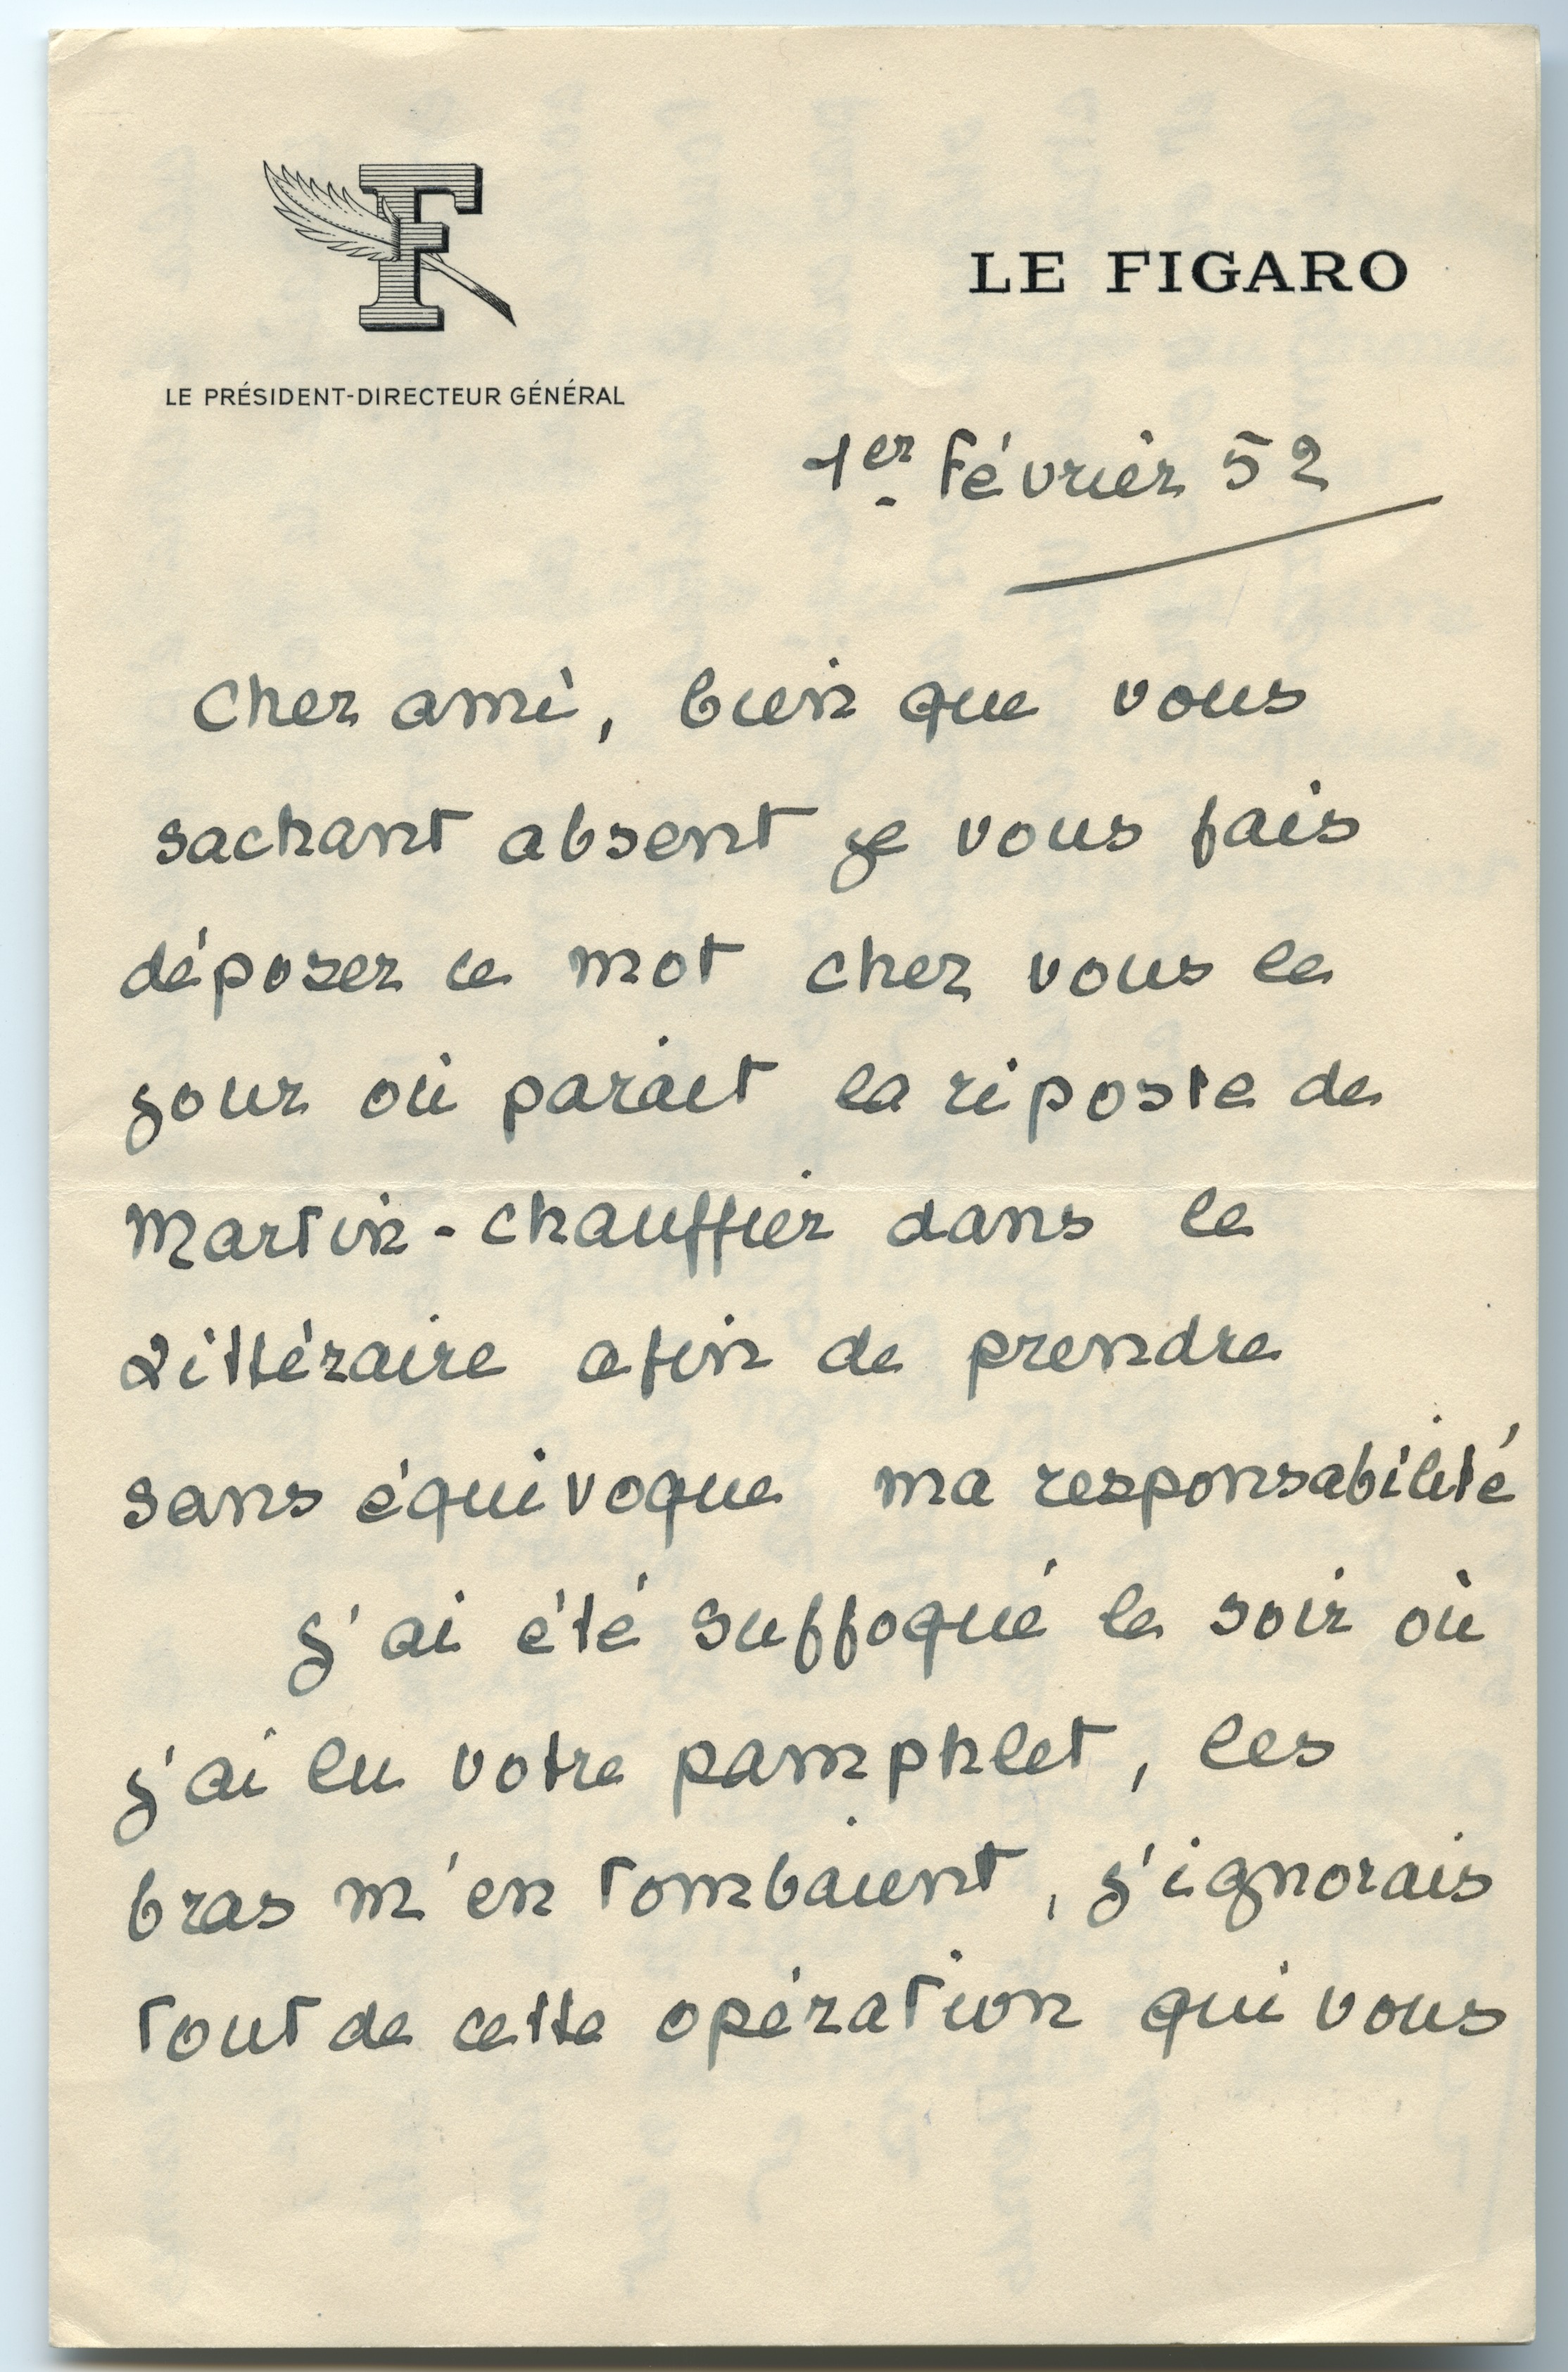 F
LE FIGARO
LE PRÉSIDENT-DIRECTEUR GÉNÉRAL
1er Février 52
Cher ami, bien que vous
sachant absent je vous fais
déposer ce mot chez vous le
jour où parait la riposte de
Martin-Chauffier dans le
Littéraire afin de prendre
sans équivoque ma responsabilité
J'ai été suffoqué le soir où
j'ai lu votre pamphlet, les
bras m'en tombaient, j'ignorais
tout de cette opération qui vous